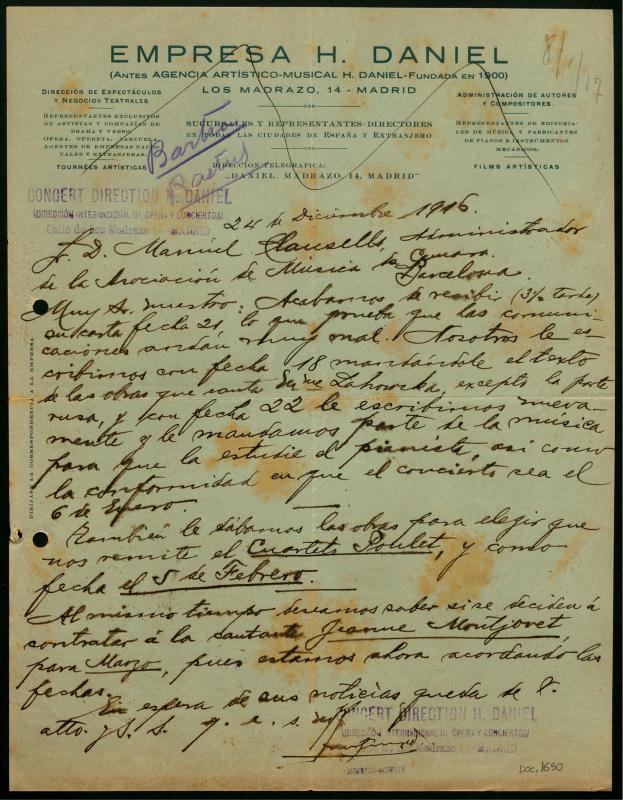 EMPRESA H. DANIEL
(ANTES AGENCIA ARTÍSTICO-MUSICAL H. DANIEL-FUNDADA EN 1900)
LOS MADRAZO, 14 - MADRID
8/1/17
DIRECCIÓN DE ESPECTÁCULOS
Y NEGOCIOS TEATRALES
REPRESENTANTES EXCLUSIVOS
DE ARTISTAS Y COMPAÑÍAS DE
DRAMA Y VERSO,
OPERA, OPERETA, ZARZUELA
AGENTES DE EMPRESAS NACIO-
NALES Y EXTRANJERAS
TOURNÉES ARTÍSTICAS
SUCURSALES Y REPRESENTANTES-DIRECTORES
EN TODAS LAS CIUDADES DE ESPAÑA Y EXTRANJERO
DIRECCIÓN TELEGRÁFICA:
„DANIEL, MADRAZO, 14, MADRID"
ADMINISTRACIÓN DE AUTORES
Y COMPOSITORES
REPRESENTANTES DE EDITORIA-
LES DE MÚSICA Y FABRICANTES
DE PIANOS E INSTRUMENTOS
MECÁNICOS.
FILMS ARTÍSTICAS
CONCERT DIRECTION H. DANIEL
(DIRECCIÓN INTERNACIONAL DE OPERA Y CONCIERTOS)
Calle de Los Madrazo 14-MADRID
24 de Diciembre 1916.
Sr. D. Manuel Clausells, Administrador
de la Asociación de Música da Camara.
Barcelona.
Muy Sr. nuestro: Acabamos de recibir (3½ tarde)
su carta fecha 21, lo que prueba que las comuni-
caciones andan muy mal. Nosotros le es-
cribimos con fecha 18 mandándole el texto
de las obras que canta Sra Lahowska, excepto la parte
rusa, y con fecha 22 le escribimos nueva-
mente y le mandamos parte de la musica
para que la estudie el pianista, así como
la conformidad en que el concierto sea el
6 de Enero.
También le dábamos las obras para elegir que
nos remite el Cuarteto Poulet, y como
fecha el 5 de Febrero.
Al mismo tiempo deseamos saber si se deciden á
contratar á la cantante Jeanne Montjovet
para Marzo, pues estamos ahora acordando las
fechas.
En espera de sus noticias queda de V.
atto. y S. S. q. e. s. m.
CONCERT DIRECTION H. DANIEL
(DIRECCIÓN INTERNACIONAL DE OPERA Y CONCIERTOS)
Madrazo 14-MADRID
DIRECTOR-GERENTE
DIRÍJASE LA CORRESPONDENCIA A LA EMPRESA
DOC. 1650